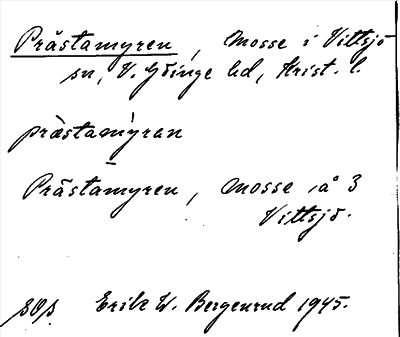 Prästamyren, Mosse i Vittsjö
sn, V. Göinge hd, Krist. l.
präs̀tamýran
Prästamyren, Mosse å 3
Vittsjö.
Erik W. Bergenrud 1945.